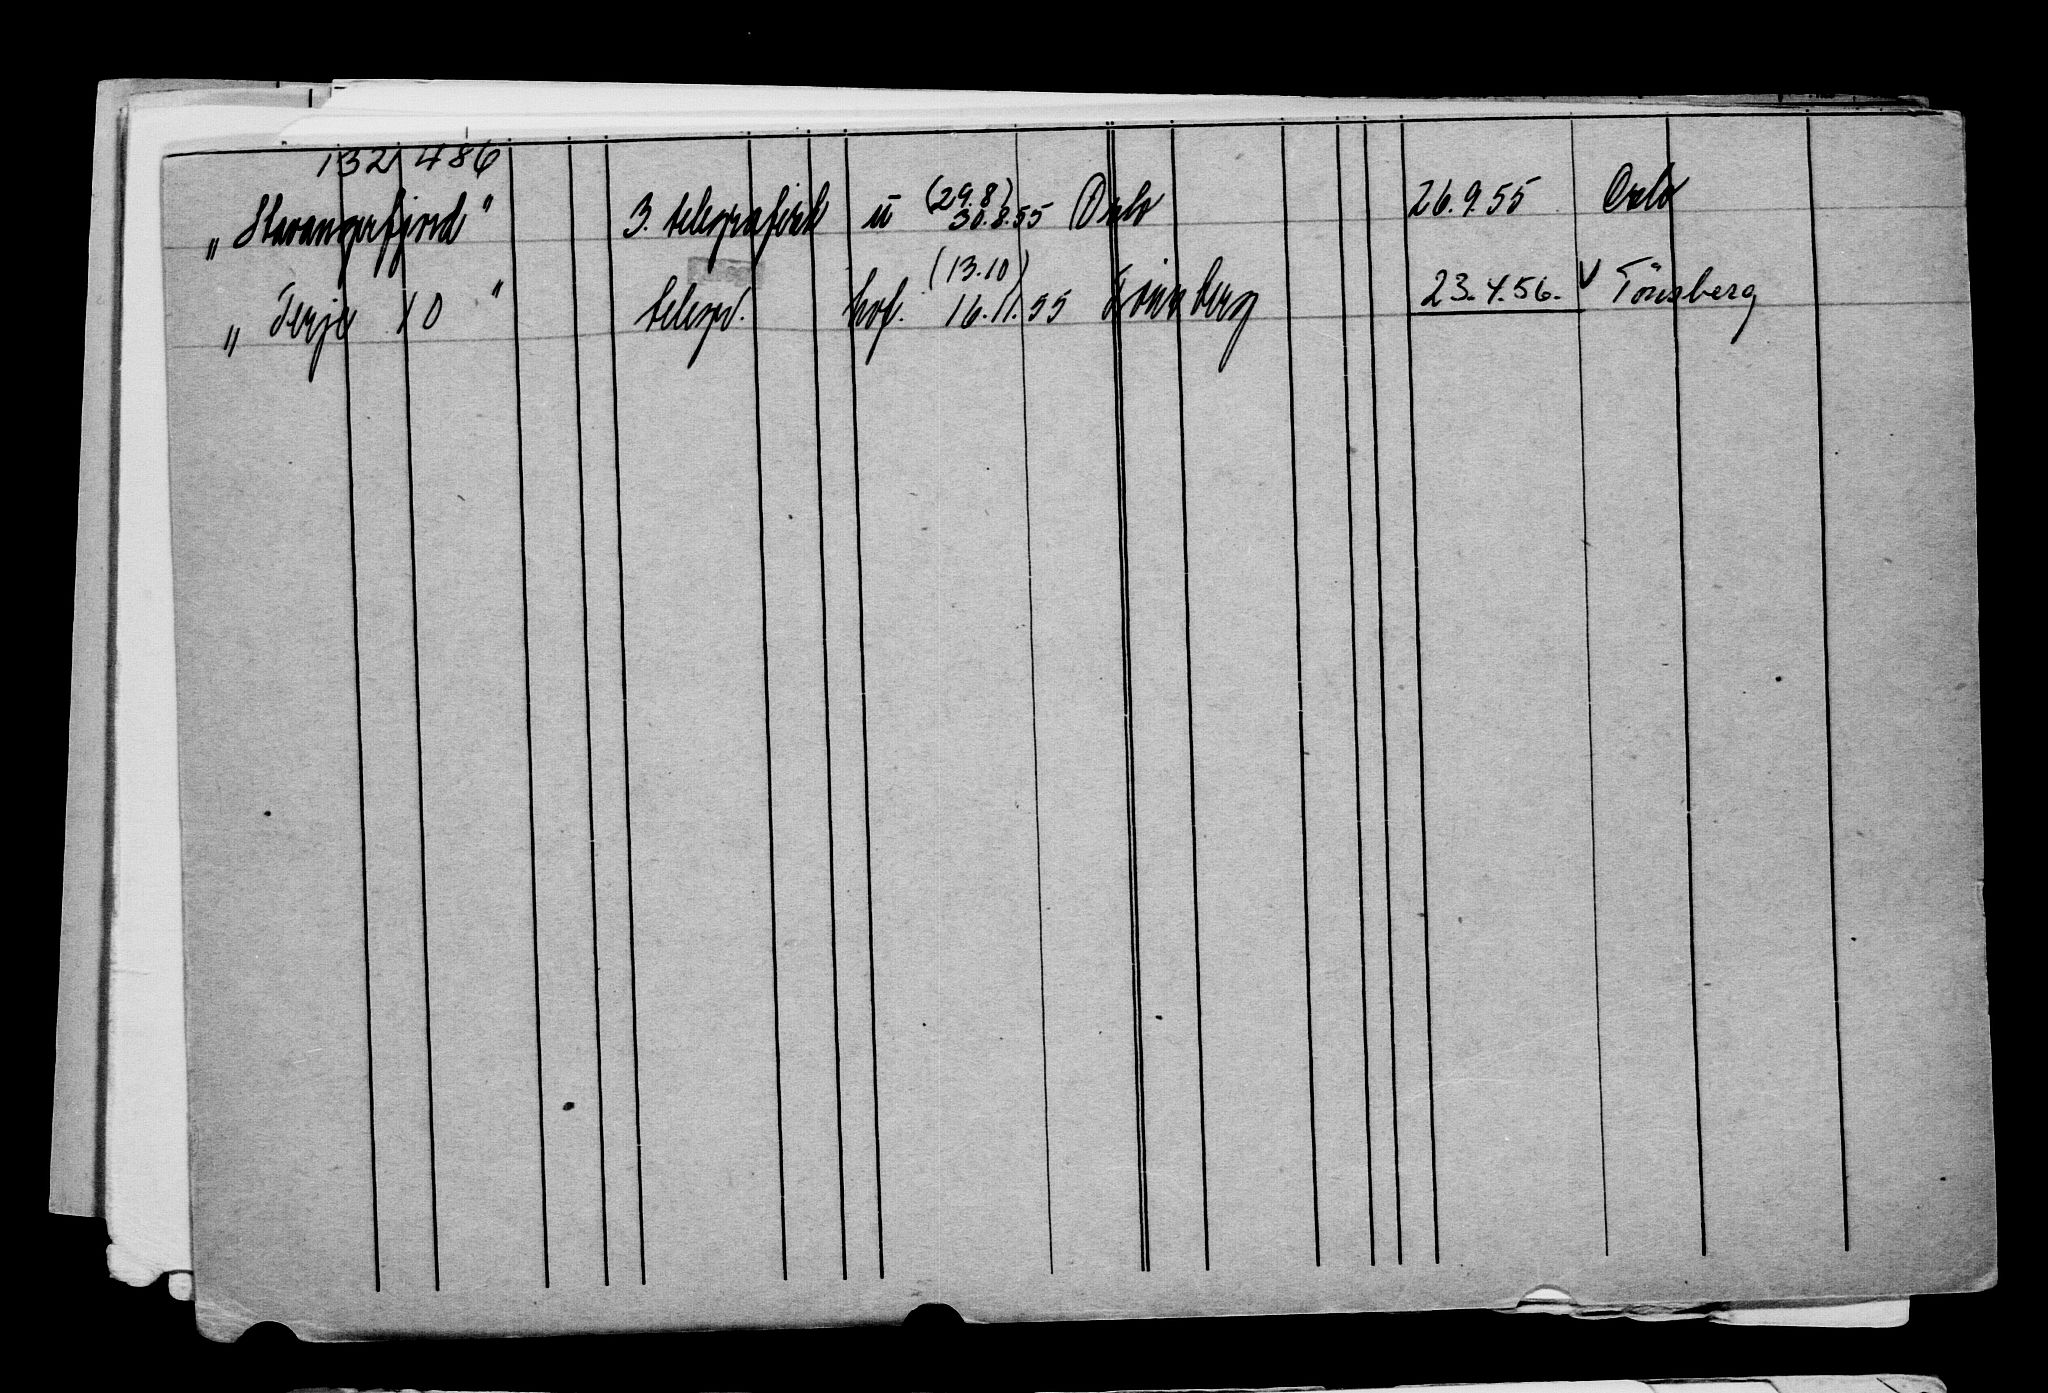 132 486
„Stavangerfjord" 3. telegrafist u (29.8) 30.8.55 Oslo 26.9.55 Oslo
„Terje 10" telegr. hvf. (13.10) 16.11.55 Tönsberg 23.4.56. V Tönsberg